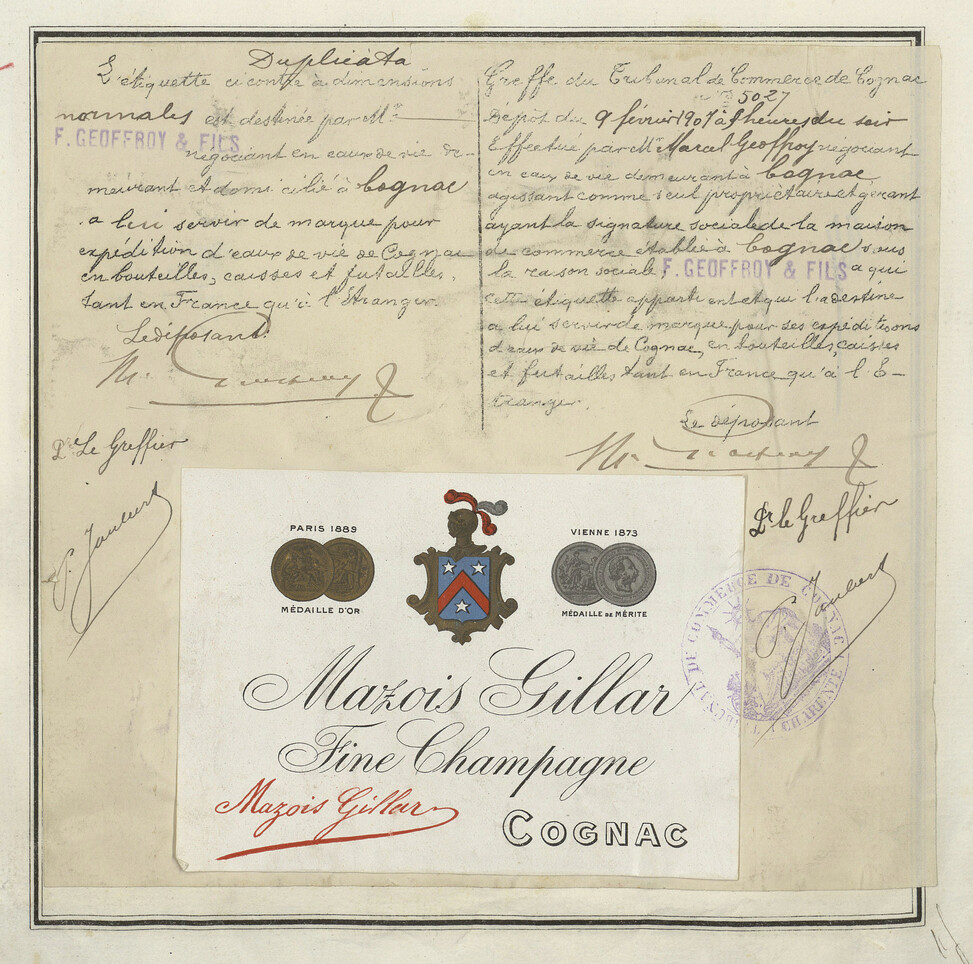 Duplicata
L'étiquette ci contre à dimensions
normales est destinée par Mr
F. GEOFFROY & FILS
négociant en eaux de vie de-
meurant et domicilié à Cognac
a lui servir de marque pour
expédition d'eaux de vie de Cognac
en bouteilles, caisses et futailles,
tant en France qu'à l'Etranger.
Le déposant
Pr Le Greffier
Greffe du Tribunal de Commerce de Cognac
5027
Dépôt du 9 février 1907 à heures du soir
Effectué par Mr Marcel Geoffroy négociant
en eaux de vie demeurant à Cognac
agissant comme seul propriétaire et gérant
ayant la signature sociale de la maison
de commerce établie à Cognac sous
la raison sociale F. GEOFFROY & FILS a qui
cette étiquette appartient et qui l'a destine
a lui servir de marque pour ses expéditions
d'eaux de vie de Cognac, en bouteilles, caisses
et futailles tant en France qu'à l'E-
tranger.
Le déposant
Pr le Greffier
TRIBUNAL DE COMMERCE DE COGNAC
CHARENTE
PARIS 1889
MÉDAILLE D'OR
VIENNE 1873
MÉDAILLE DE MÉRITE
Mazois Gillar
Fine Champagne
Mazois Gillar
COGNAC